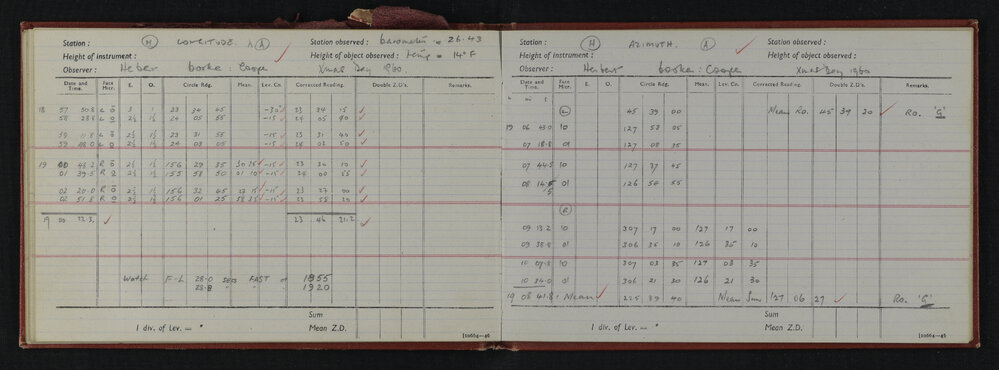 Station : (H) LONGITUDE. (A) Station observed : barometer = 26.43
Height of instrument : Height of object observed : temp = 14°F
Observer : Herbert booker : Cooper Xmas Day 1960.
Date and Time Face Micr. E. O. Circle Rdg. Mean. Lev. Cn. Corrected Reading. Double Z.D's. Remarks.
18 57 50.8 L 23 34 45 -30 ✓ 23 34 15 ✓
58 28.8 L 2½ 1½ 24 05 55 -15 ✓ 24 05 40 ✓
59 11.8 L 2½ 1½ 23 31 55 -15 ✓ 23 31 40 ✓
59 48.0 L 2½ 1½ 24 03 05 -15 ✓ 24 02 50 ✓
19 00 43.2 R 2½ 1½ 156 29 35 30 25 ✓ -15 ✓ 23 30 10 ✓
01 39.5 R 2½ 1½ 155 58 50 01 10 ✓ -15 ✓ 24 00 55 ✓
02 20.0 R 2½ 1½ 156 32 45 27 15 ✓ -15 ✓ 23 27 00 ✓
02 51.8 R 2½ 1½ 156 01 25 58 35 ✓ -15 ✓ 23 58 20 ✓
19 00 ✓ 23 46 21.2 ✓
Watch F-L 28.0 secs FAST at 1855
28.8 " " " 1920
Sum
1 div. of Lev. = " Mean Z.D. [10664—46
Station : (H) AZIMUTH. (A) Station observed :
Height of instrument : Height of object observed :
Observer : Herbert booker : Cooper Xmas Day 1960
Date and Time Face Micr. E. O. Circle Rdg. Mean. Lev. Cn. Corrected Reading. Double Z.D's. Remarks.
h m s (L) 45 39 00 Mean Ro. 45 39 30 ✓ Ro. 'G'
19 06 43.0 10 127 53 05
07 18.8 01 127 08 35
07 44.5 10 127 37 45
08 14.5 01 126 54 55
(R)
09 13.2 10 307 17 00 127 17 00
09 38.8 01 306 35 10 126 35 10
10 09.8 10 307 03 35 127 03 35
10 34.0 01 306 21 30 126 21 30
19 08 41.8 Mean ✓ 225 39 40 Mean Sun 127 06 27 ✓ Ro. 'G'
Sum
1 div. of Lev. = " Mean Z.D. [10664—46